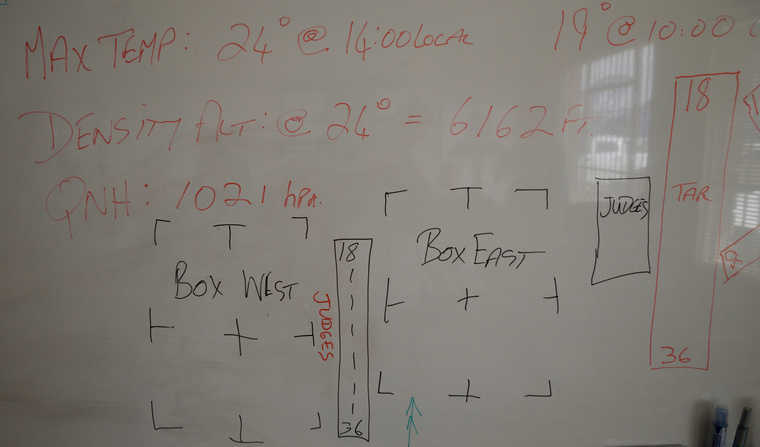 MAX TEMP: 24° @ 14:00 LOCAL 19° @ 10:00
DENSITY ALT: @ 24° = 6162 FT.
QNH: 1021 hPa.
18
TAR
36
JUDGES
BOX EAST
18
36
BOX WEST
JUDGES